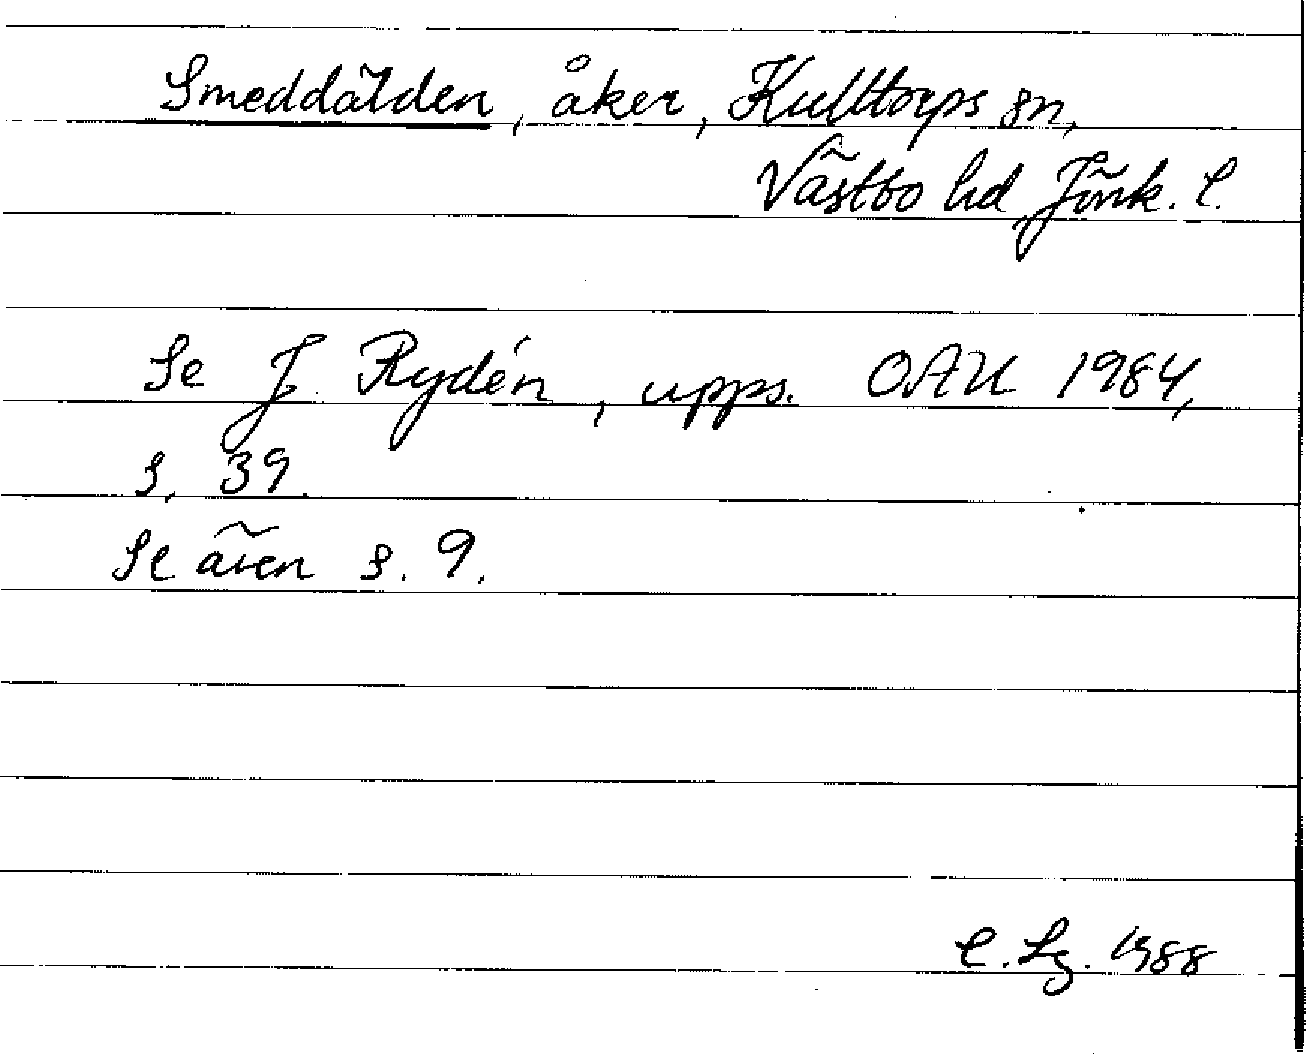 Smeddälden, åker, Kulltorps sn,
Västbo hd Jönk. l.
Se J Rydén, upps. OAU 1984,
s. 39.
Se även s. 9.
C. Lg. 1988